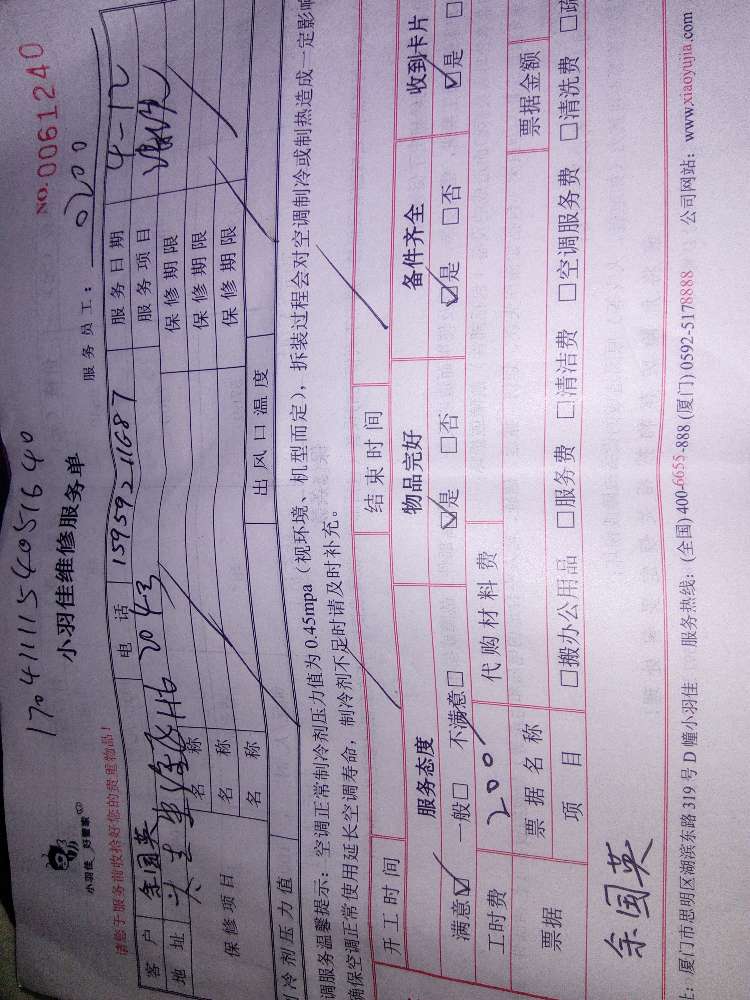 1704111154051640
NO.0061240
小羽佳 好管家
小羽佳维修服务单
服务员工: 0200
请您于服务前收拾好您的贵重物品!
客户 余国英 电话 15959211687 服务日期 4-12
地址 2043 服务项目
保修项目 名称 保修期限
名称 保修期限
名称 保修期限
制冷剂压力值 出风口温度
调服务温馨提示:空调正常制冷剂压力值为0.45mpa(视环境、机型而定),拆装过程会对空调制冷或制热造成一定影响
确保空调正常使用延长空调寿命,制冷剂不足时请及时补充。
开工时间 结束时间
服务态度 物品完好 备件齐全 收到卡片
满意☑ 一般□ 不满意□ ☑是 □否 ☑是 □否 ☑是 □
工时费 200 代购材料费
票据 票据名称 票据金额
项目 □搬办公用品 □服务费 □清洁费 □空调服务费 □清洗费 □疏
余国英
址:厦门市思明区湖滨东路319号D幢小羽佳 服务热线:(全国)400-6655-888(厦门)0592-5178888 公司网站:www.xiaoyujia.com